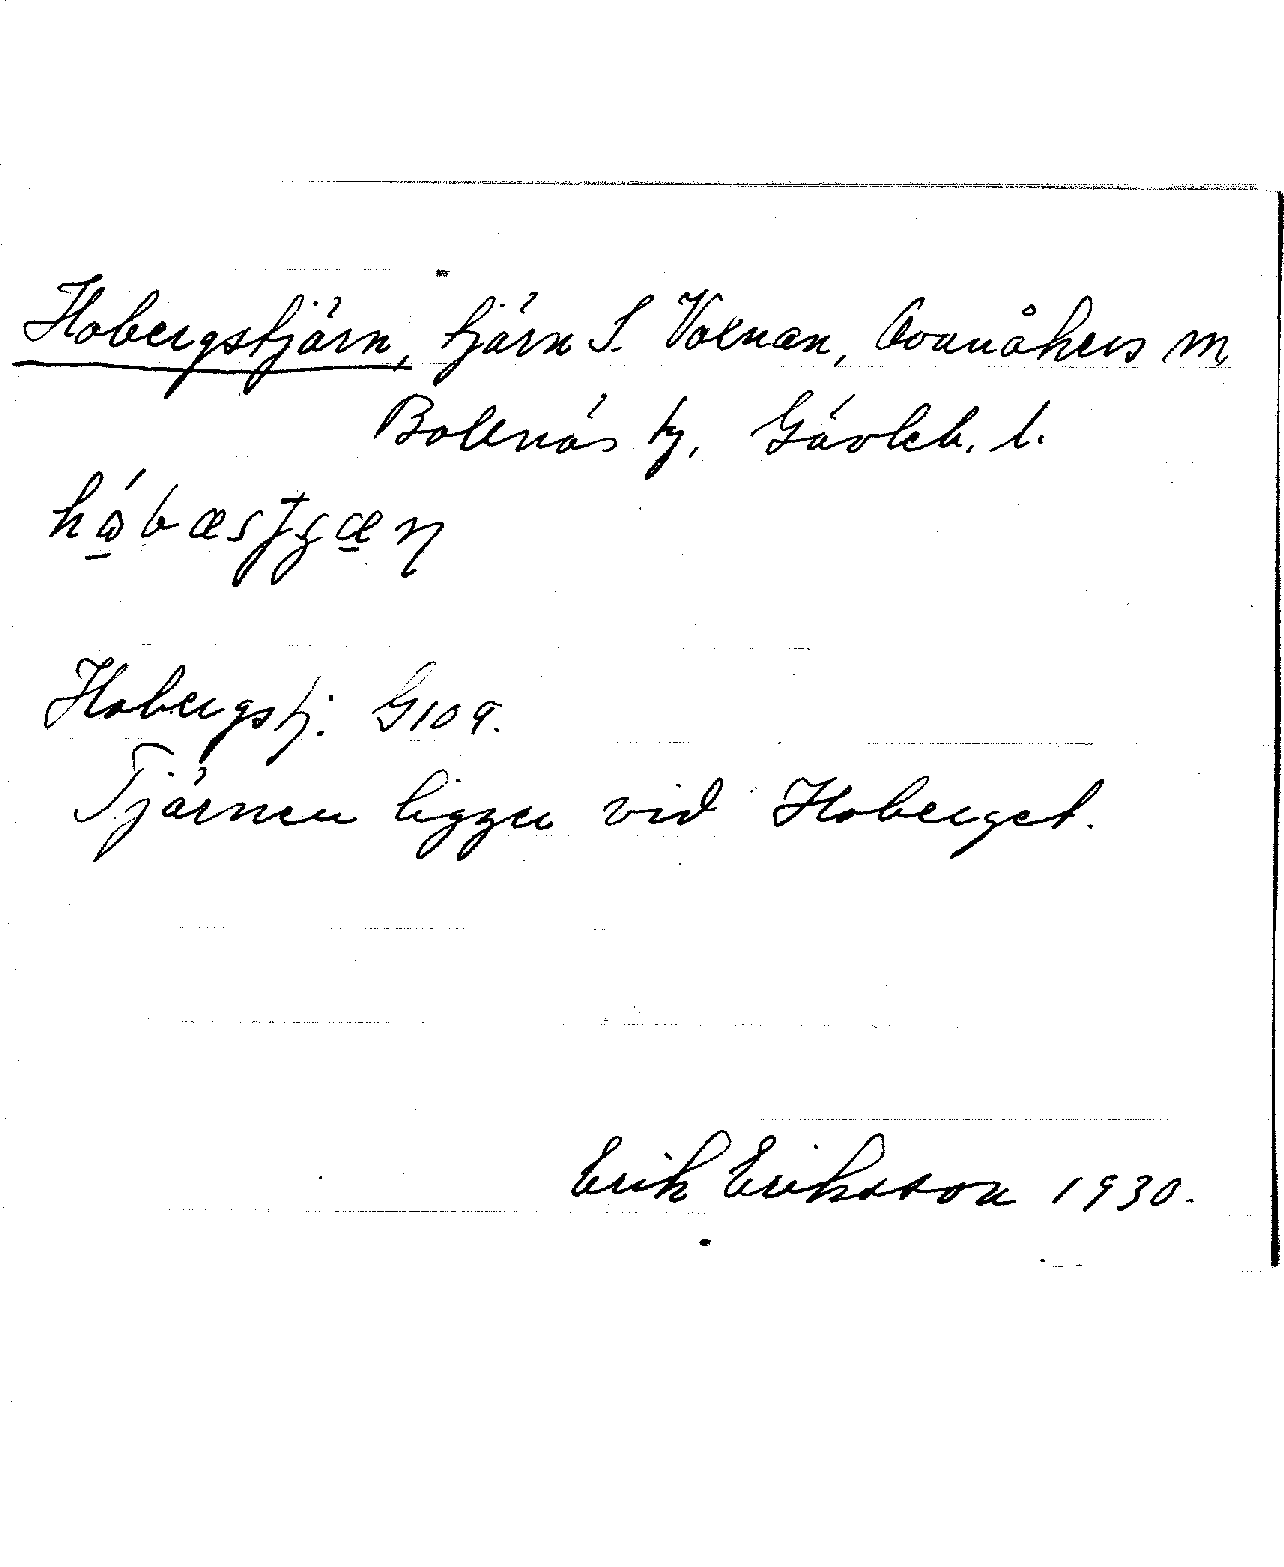 Hobergstjärn, tjärn S. Voxnan, Ovanåkers sn
Bollnäs tg, Gävleb. l.
Hobergstj. G109.
Tjärnen ligger vid Hoberget.
Erik Eriksson 1930.